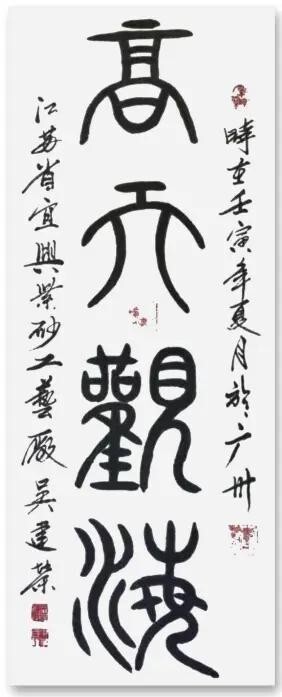 時在壬寅年夏月於广州
高天觀海
江苏省宜興紫砂工藝廠吴建荣